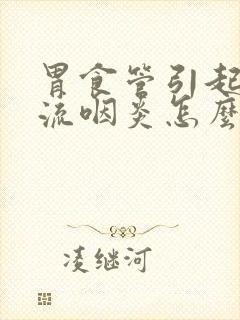 胃食管引起
流咽炎怎麼
凌继河